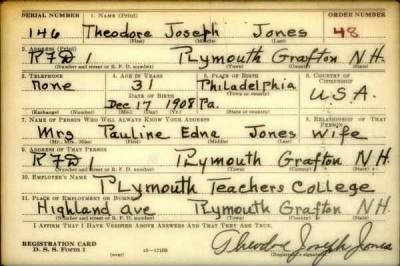 SERIAL NUMBER 1. NAME (Print) ORDER NUMBER
146 Theodore Joseph Jones 48
(First) (Middle) (Last)
2. ADDRESS (Print)
RFD 1 Plymouth Grafton N.H.
(Number and street or R. F. D. number) (Town) (County) (State)
3. TELEPHONE 4. AGE IN YEARS 5. PLACE OF BIRTH 6. COUNTRY OF CITIZENSHIP
None 31 Philadelphia
DATE OF BIRTH (Town or county) U.S.A.
Dec 17 1908 Pa.
(Exchange) (Number) (Mo.) (Day) (Yr.) (State or country)
7. NAME OF PERSON WHO WILL ALWAYS KNOW YOUR ADDRESS 8. RELATIONSHIP OF THAT PERSON
Mrs Pauline Edna Jones Wife
(Mr., Mrs., Miss) (First) (Middle) (Last)
9. ADDRESS OF THAT PERSON
RFD 1 Plymouth Grafton N.H.
(Number and street or R. F. D. number) (Town) (County) (State)
10. EMPLOYER'S NAME
Plymouth Teachers College
11. PLACE OF EMPLOYMENT OR BUSINESS
Highland Ave Plymouth Grafton N.H.
(Number and street or R. F. D. number) (Town) (County) (State)
I AFFIRM THAT I HAVE VERIFIED ABOVE ANSWERS AND THAT THEY ARE TRUE.
REGISTRATION CARD Theodore Joseph Jones
D. S. S. Form 1 (over) (Registrant's signature)